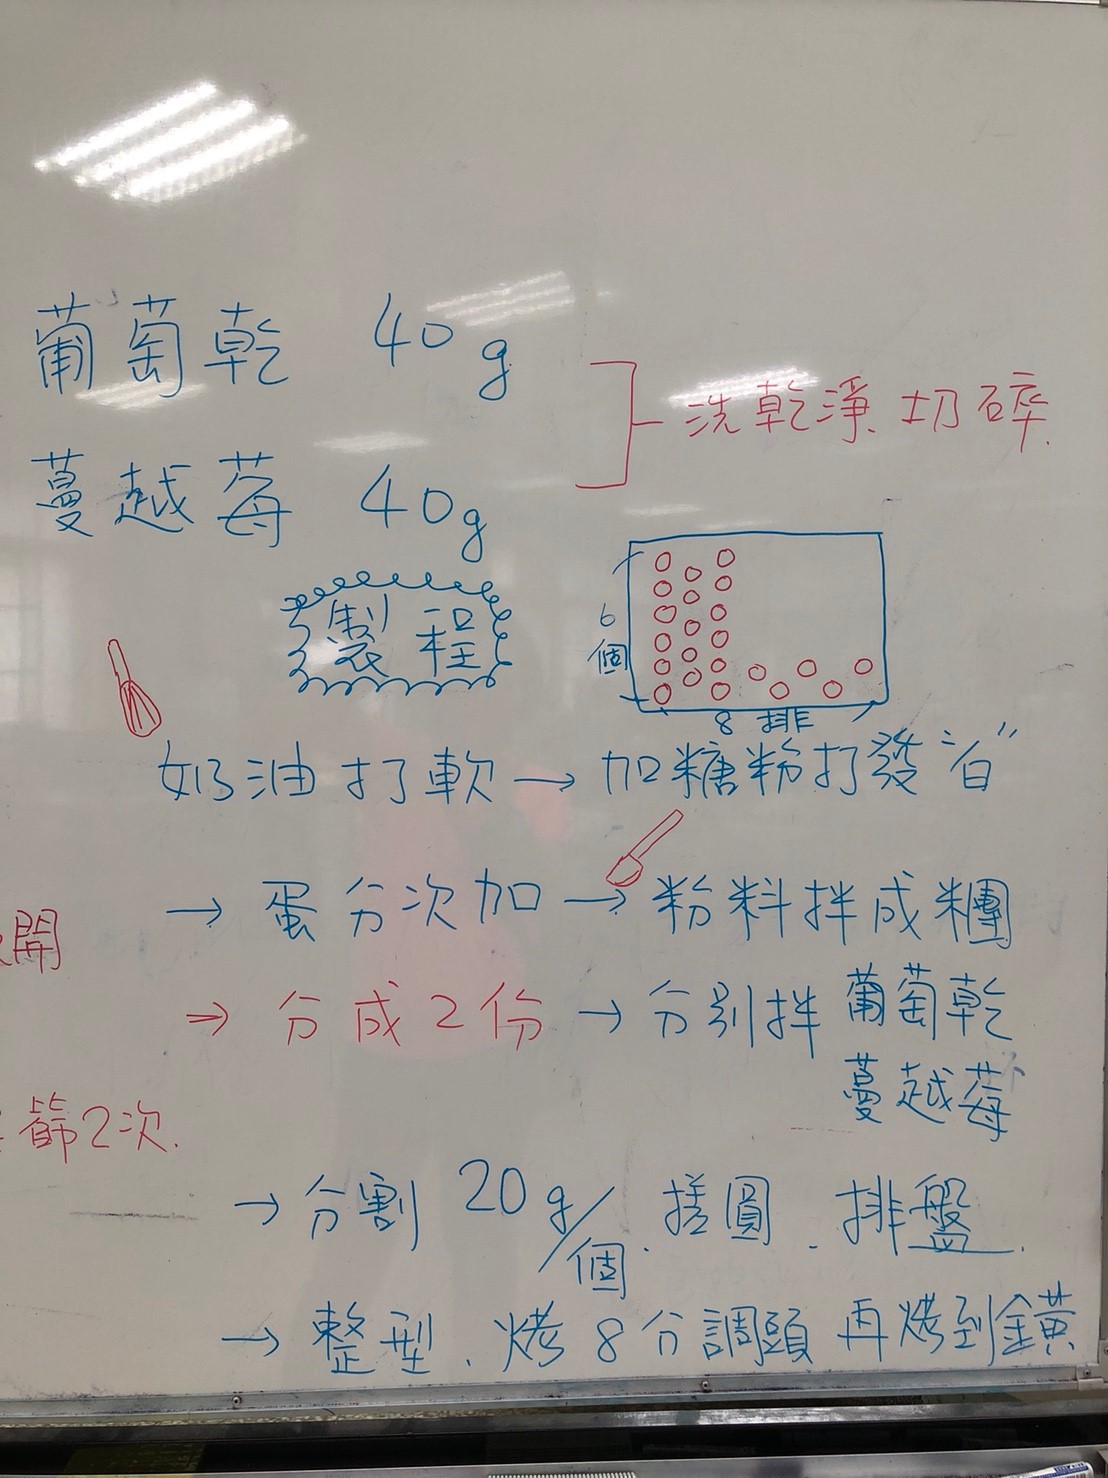 葡萄乾 40g
蔓越莓 40g
洗乾淨、切碎.
製程
6個
8排
奶油打軟→加糖粉打發"白"
→蛋分次加→粉料拌成糰
開
→分成2份→分別拌 葡萄乾
蔓越莓
篩2次.
→分割 20g/個. 搓圓. 排盤.
→整型. 烤8分調頭再烤到金黃